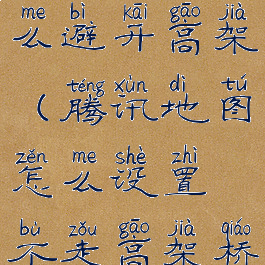 me bì kāi gāo jià
么避开高架
téng xùn dì tú
（腾讯地图
zěn me shè zhì
怎么设置
bù zǒu gāo jià qiáo
不走高架桥